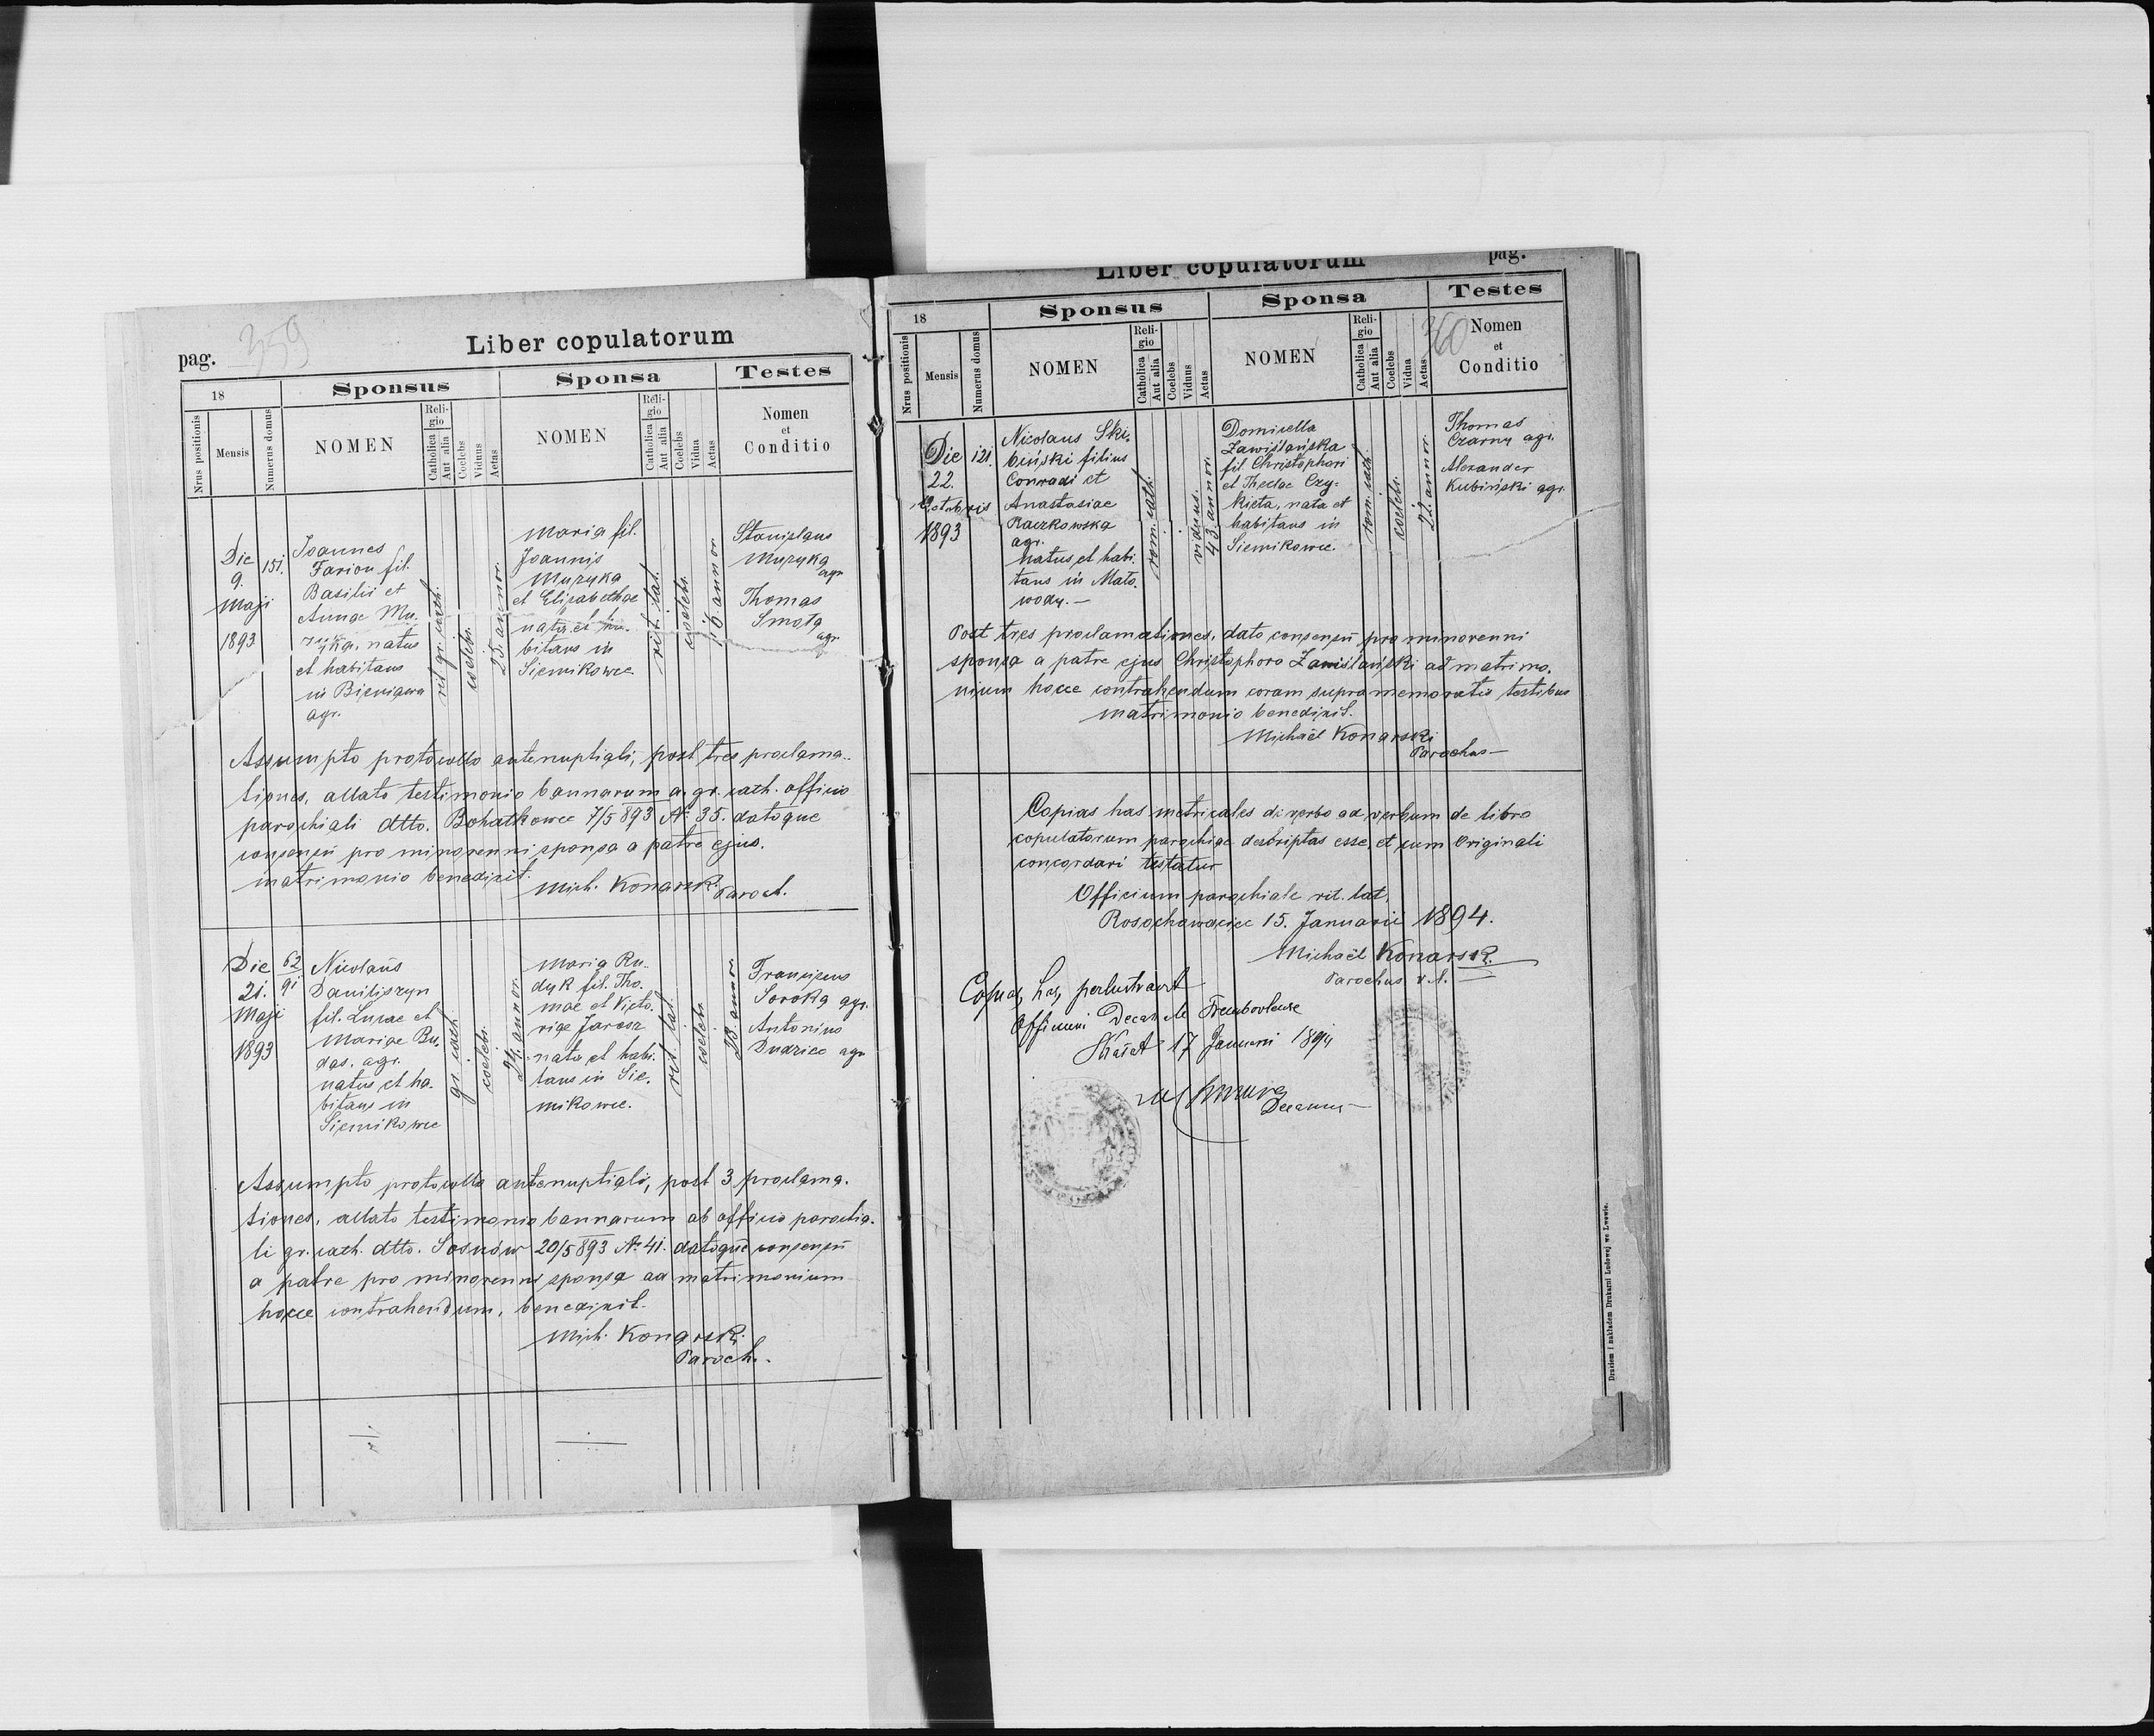 pag. 359
Liber copulatorum
18
Sponsus
Sponsa
Testes
Nrus positionis
Mensis
Numerus domus
NOMEN
Religio
Catholica
Aut alia
Coelebs
Viduus
Aetas
NOMEN
Religio
Catholica
Aut alia
Coelebs
Vidua
Aetas
Nomen
et
Conditio
Die
9.
Maji
1893
151.
Joannes
Farion fil.
Basilii et
Annae Mu-
zyka, natus
et habitans
in Bieniawa
agr.
rit. gr. cath.
coelebs.
25. annor.
Maria fil.
Joannis
Muzyka
et Elisabethae
nata et ha-
bitans in
Siemikowce
rit. lat.
coelebs.
annor.
Stanislaus
Muzyka
agr.
Thomas
Smola
agr.
Assumpto protocollo antenuptiali, post tres proclama-
tiones, allato testimonio bannorum a gr. cath. officio
parochiali dtto. Bohatkowce 7/5 893 N. 35. datoque
consensu pro minorenni sponsa a patre ejus.
matrimonio benedixit.
Mich. Konarski
Paroch.
Die
21.
Maji
1893
62
91
Nicolaus
Daniliszyn
fil. Lucae et
Mariae Bu-
das. agr.
natus et ha-
bitans in
Siemikowce
gr. cath.
coelebs.
24. annor.
Maria Ru-
dyk fil. Tho-
mae et Victo-
riae Jarosz
nata et habi-
tans in Sie-
mikowce.
rit. lat.
coelebs.
annor.
Franciscus
Soroka agr.
Antonius
Dudzic agr.
Assumpto protocollo antenuptiali, post 3 proclama-
tiones, allato testimonio bannorum ab officio parochia-
li gr. cath. dtto. Sosnów 20/5 893 N. 41. datoque consensu
a patre pro minorenni sponsa ad matrimonium
hocce contrahendum, benedixit.
Mich. Konarski
Paroch.
Liber copulatorum
pag.
360
18
Sponsus
Sponsa
Testes
Nrus positionis
Mensis
Numerus domus
NOMEN
Religio
Catholica
Aut alia
Coelebs
Viduus
Aetas
NOMEN
Religio
Catholica
Aut alia
Coelebs
Vidua
Aetas
Nomen
et
Conditio
Die
22.
Octobris
1893
121.
Nicolaus Ski-
biński filius
Conradi et
Anastasiae
Raczkowska
agr.
natus et habi-
tans in Mało-
wody.—
rom. cath.
viduus.
43. annor.
Domicella
Zawiślańska
fil. Christophori
et Theclae Czy-
kieta, nata et
habitans in
Siemikowce.
rom. cath.
coelebs.
22. annor.
Thomas
Czarny agr.
Alexander
Kubiński agr.
Post tres proclamationes, dato consensu pro minorenni
sponsa a patre ejus Christophoro Zawiślański ad matrimo-
nium hocce contrahendum coram supra memoratis testibus
matrimonio benedixit.
Michaël Konarski
Parochus—
Copias has metricales de verbo ad verbum de libro
copulatorum parochiae descriptas esse, et cum originali
concordari testatur
Officium parochiale rit. lat.
Rosochowaciec 15. Januarii 1894.
Michaël Konarski
Parochus r. l.
Copias has perlustravit
Officium Decanale Trembovlense
Skałat 17 Januarii 1894
Decanus
Drukiem i nakładem Drukarni Ludowej we Lwowie.